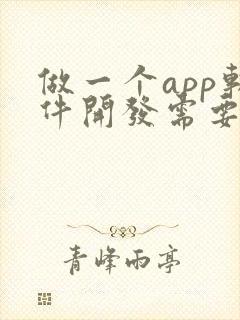 做一个app軟
件開發需要
青峰雨亭